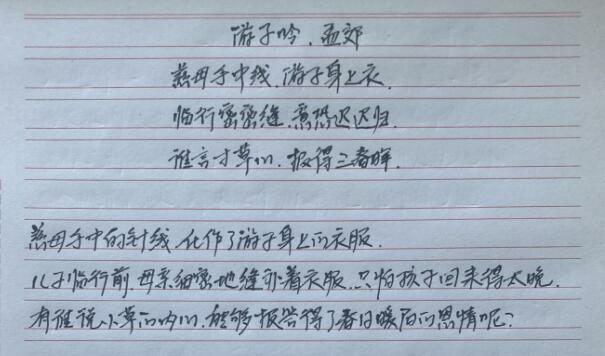 游子吟.孟郊
慈母手中线.游子身上衣.
临行密密缝.意恐迟迟归.
谁言寸草心.报得三春晖.
慈母手中的针线.化作了游子身上的衣服.
儿子临行前.母亲细密地缝补着衣服.只怕孩子回来得太晚.
有谁说小草的内心.能够报答得了春日暖阳的恩情呢?